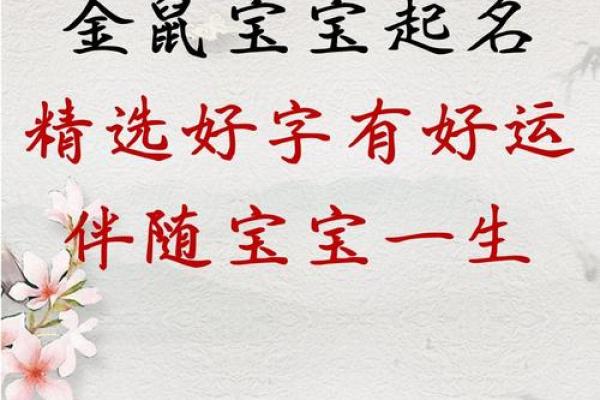 金鼠宝宝起名
精选好字有好运
伴随宝宝一生